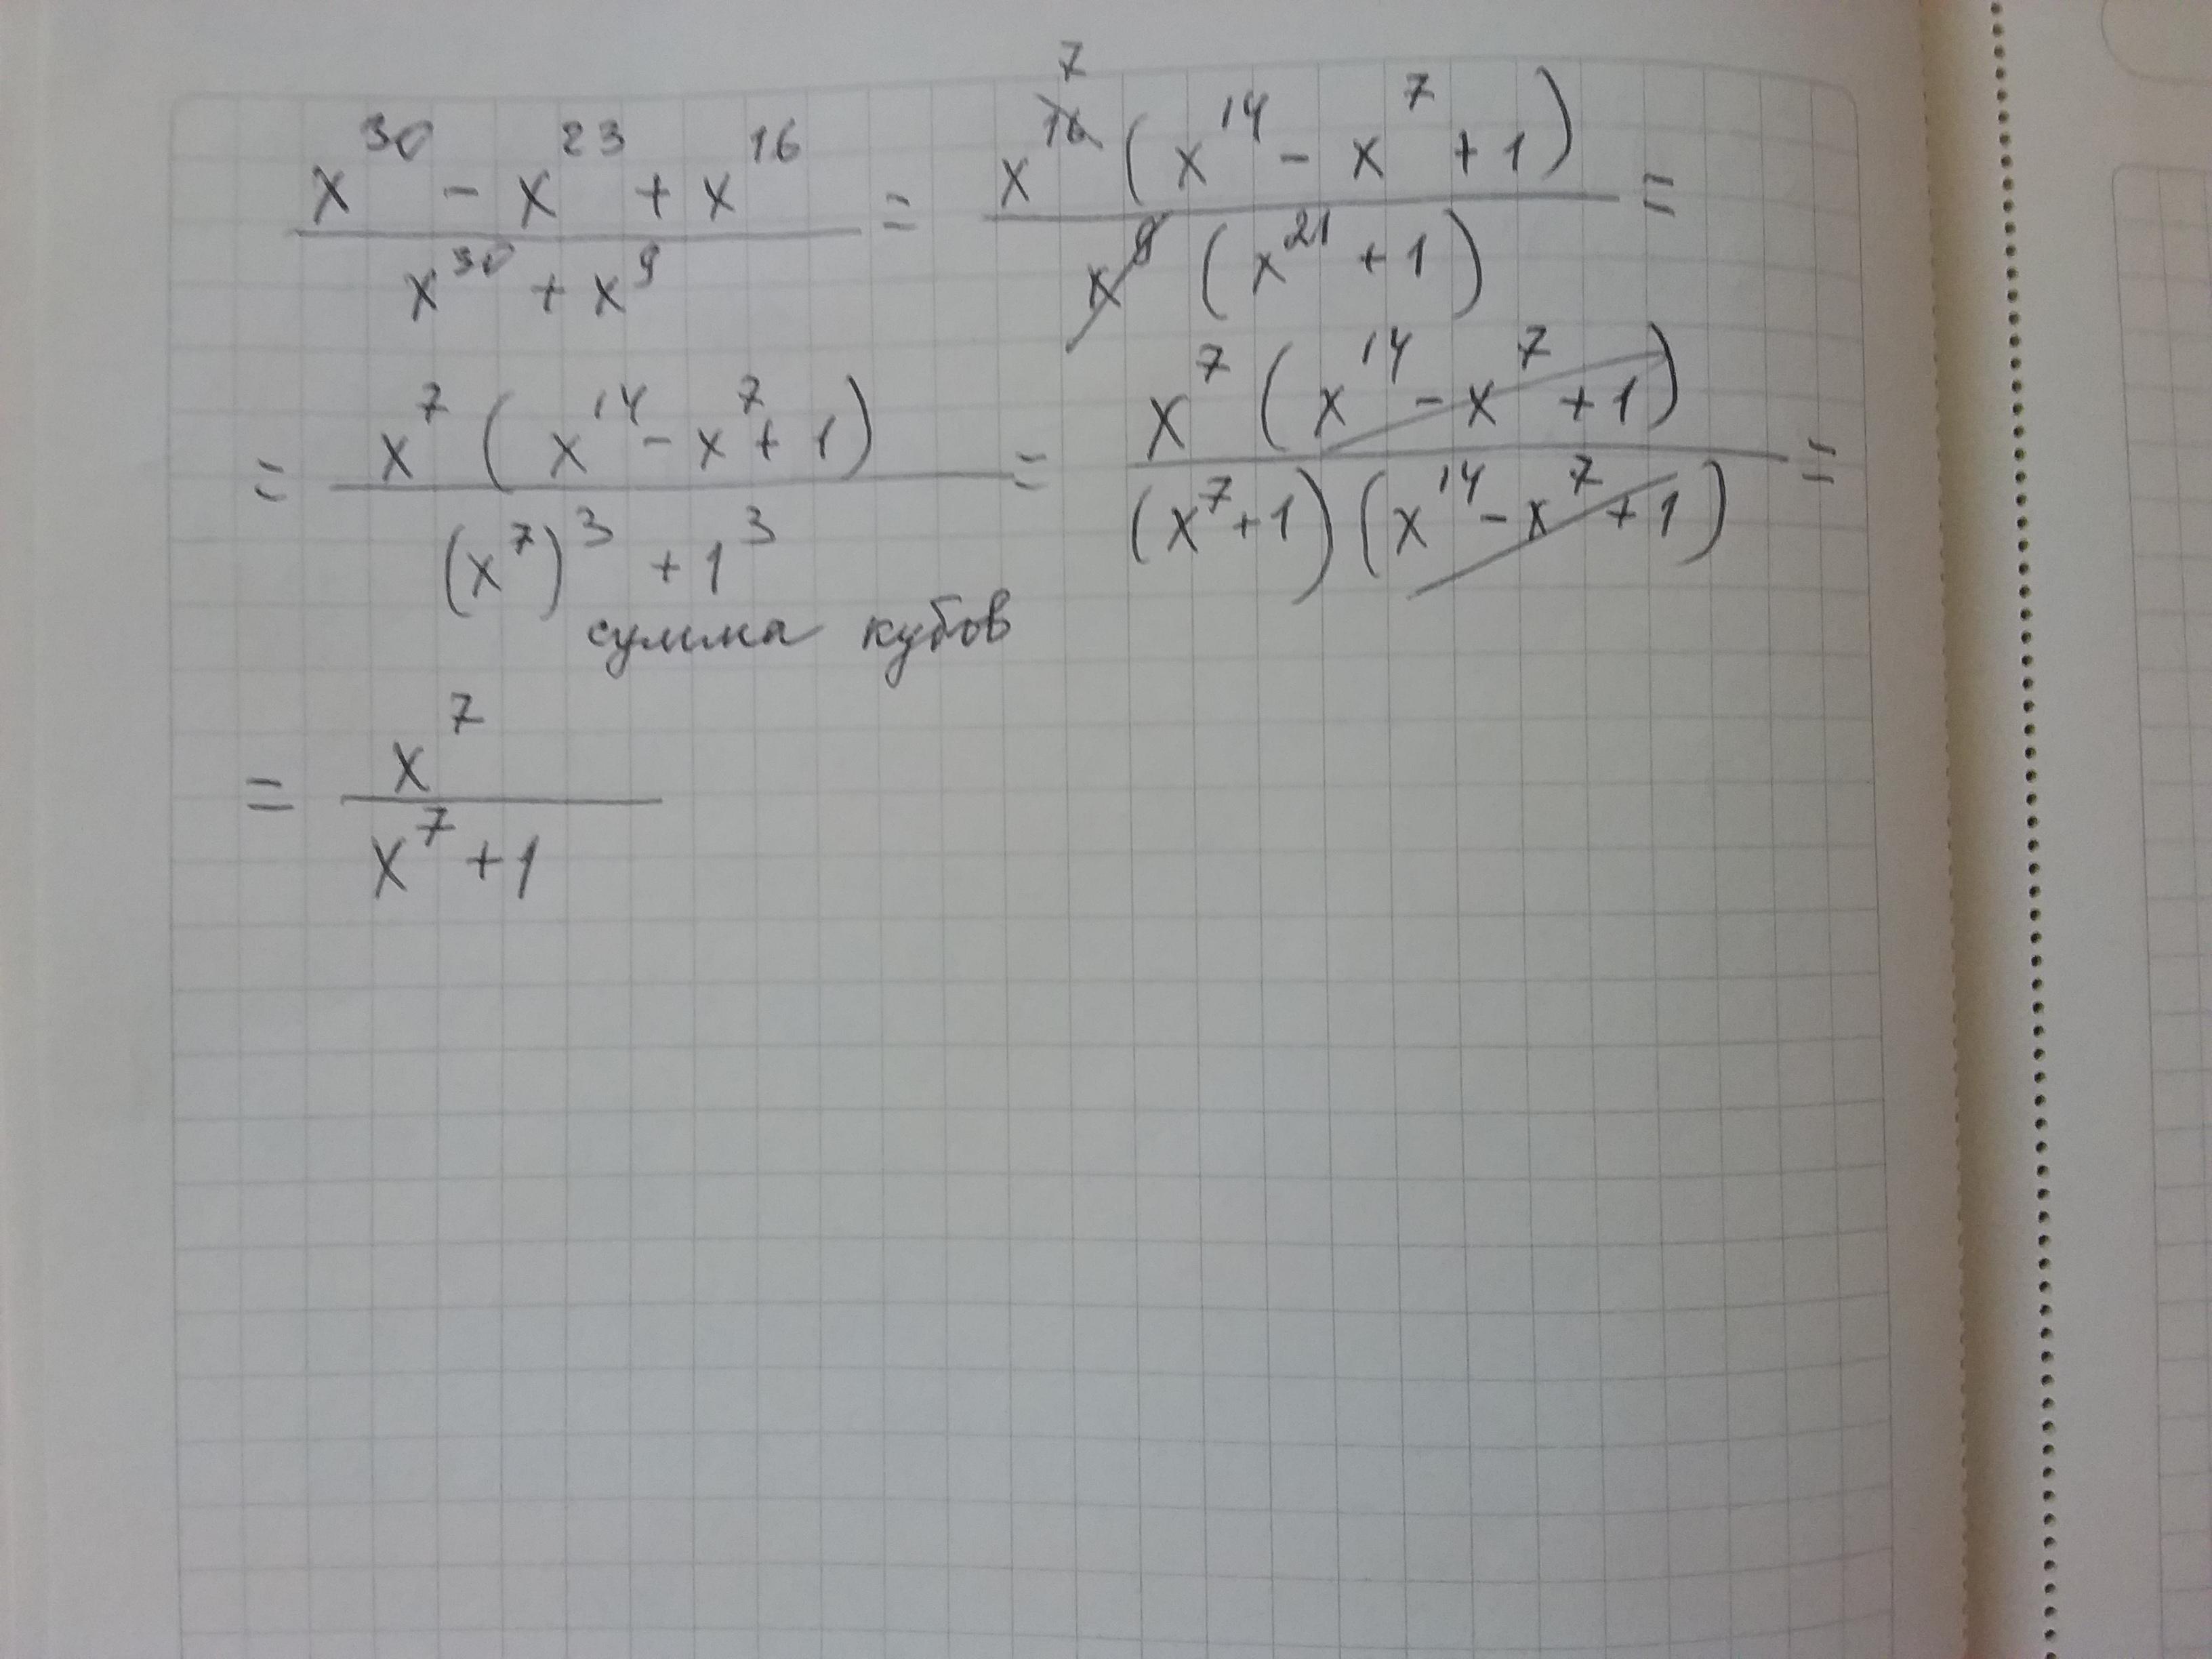 (x³⁰ - x²³ + x¹⁶)/(x³⁰ + x⁹) = x¹⁶ ⁷ (x¹⁴ - x⁷ + 1)/x⁹ (x²¹ + 1) =
= x⁷ (x¹⁴ - x⁷ + 1)/((x⁷)³ + 1³) = x⁷ (x¹⁴ - x⁷ + 1)/(x⁷ + 1)(x¹⁴ - x⁷ + 1) =
сумма кубов
= x⁷/(x⁷ + 1)